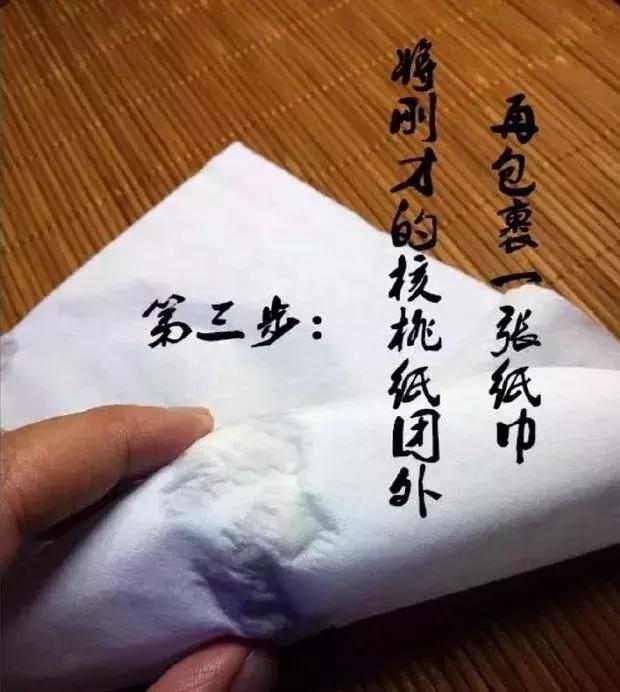 第三步：
将刚才的核桃纸团外
再包裹一张纸巾